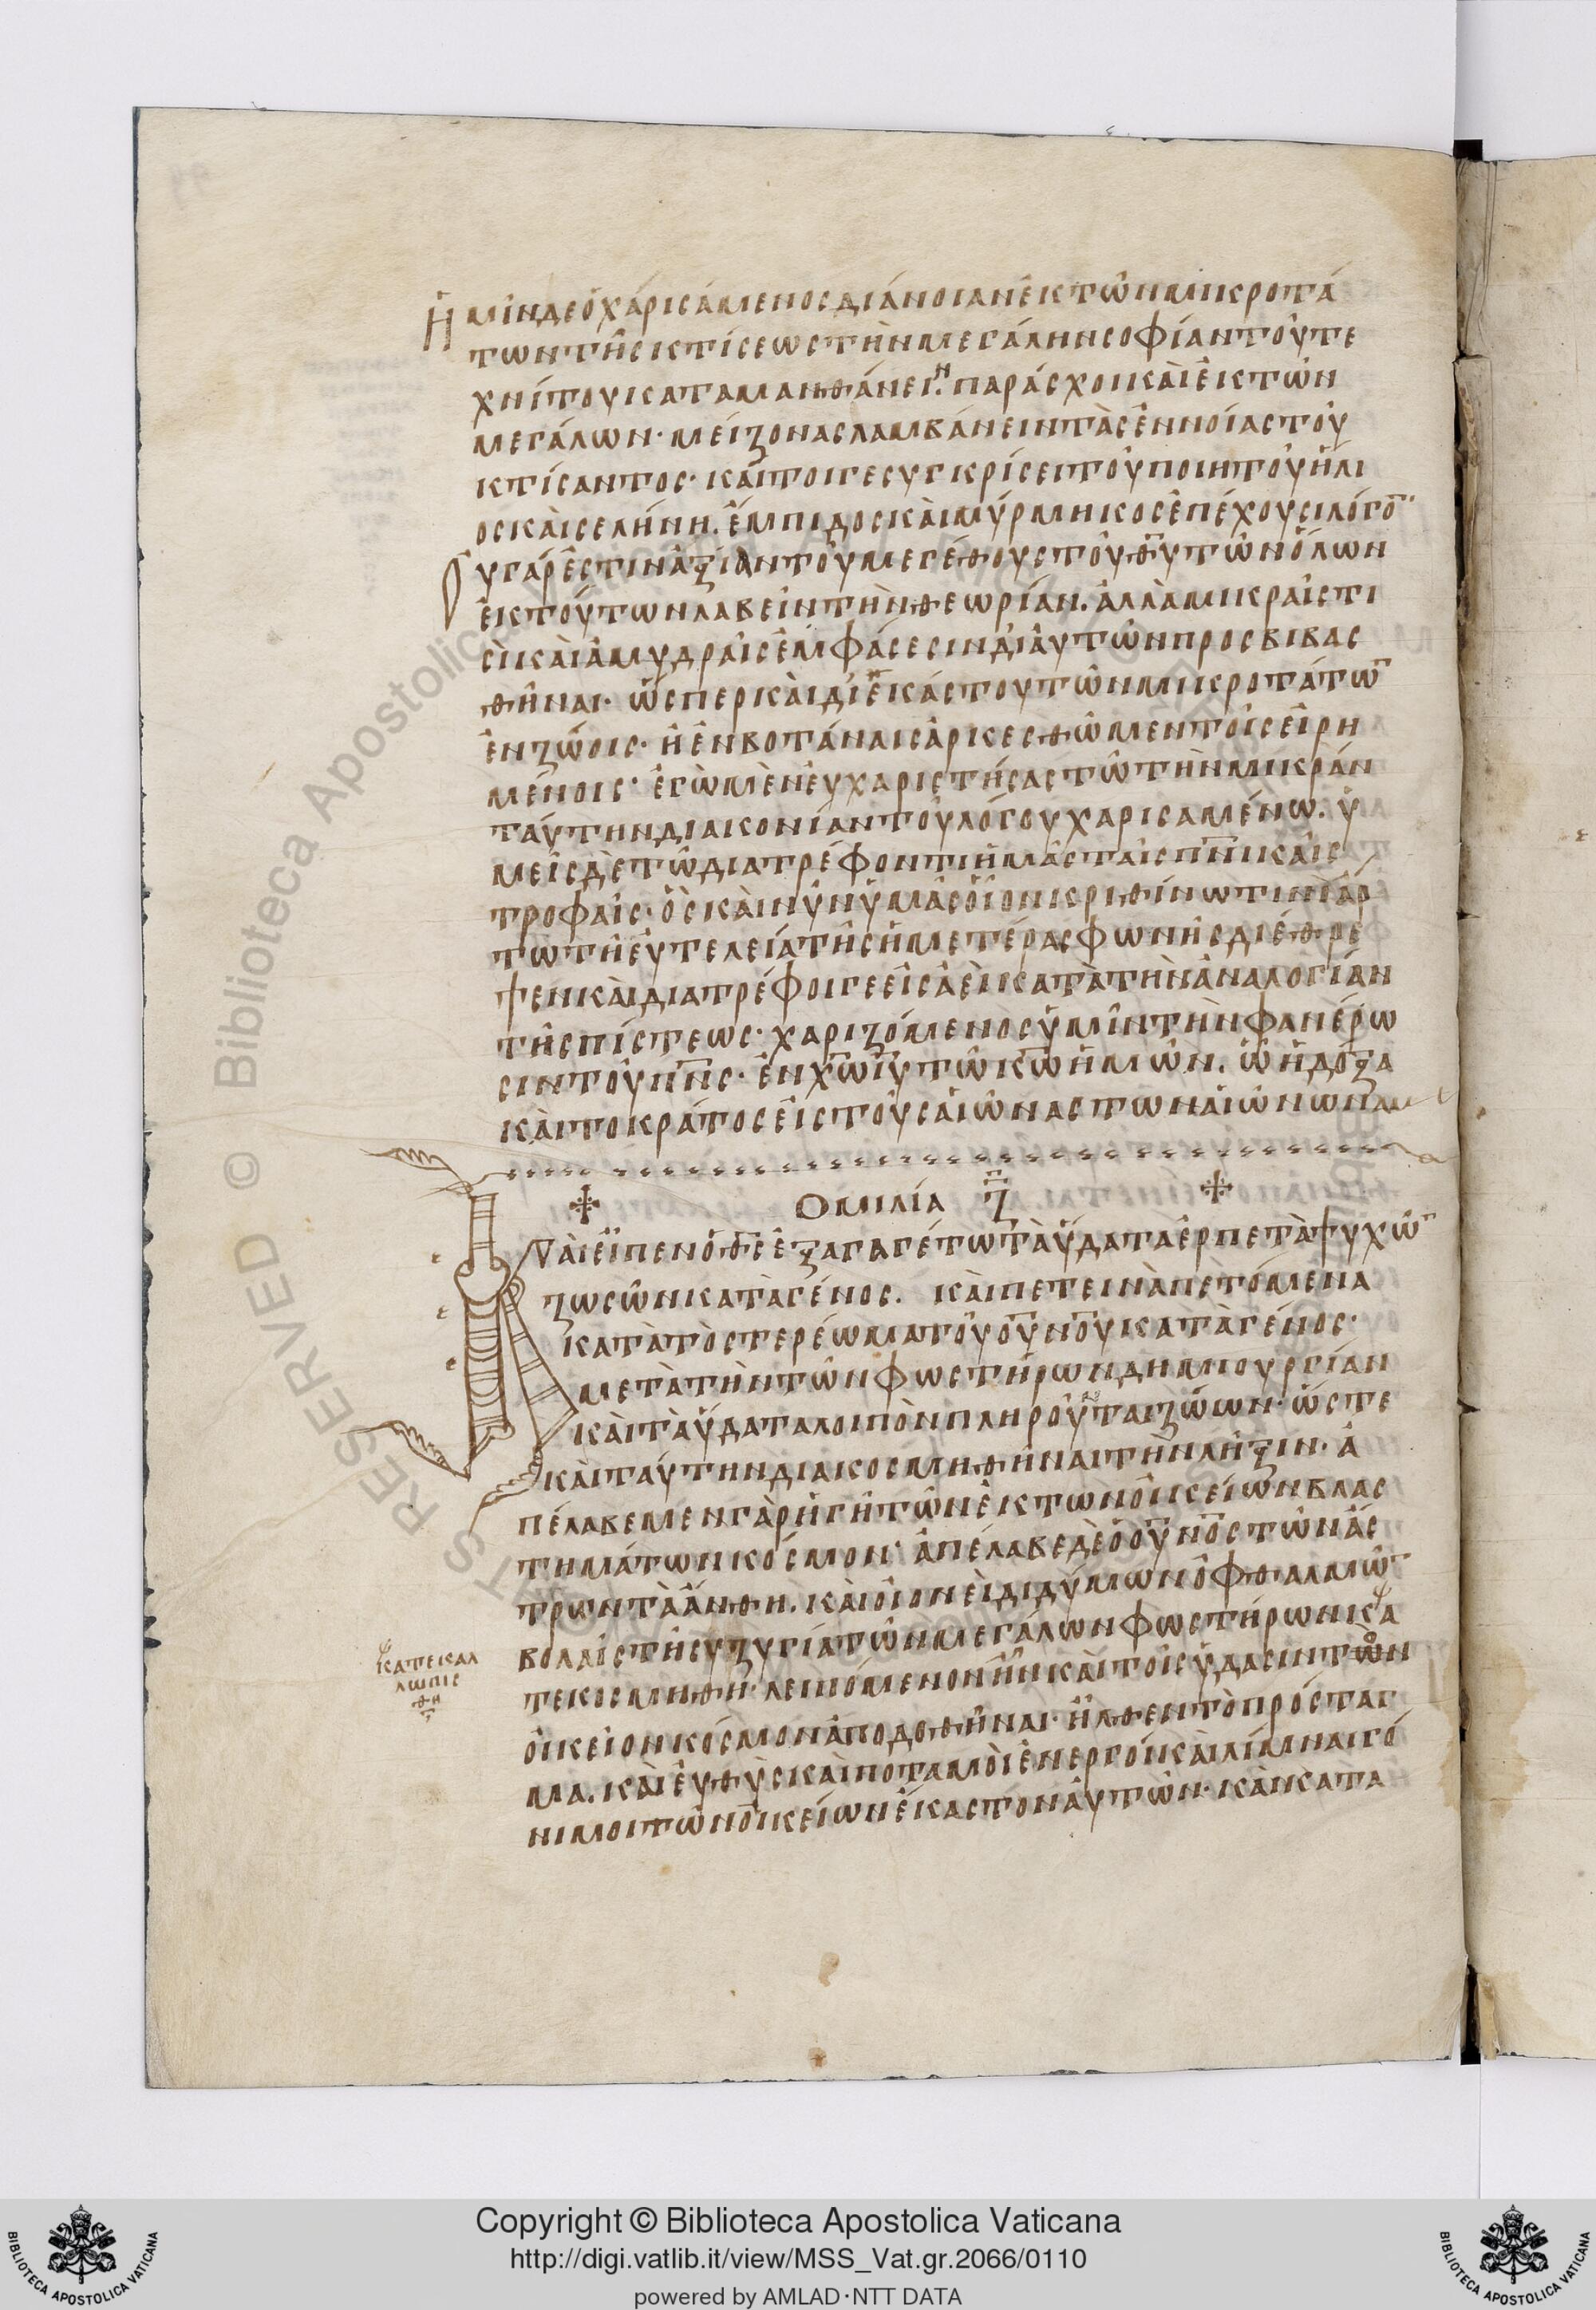 Ἡμὶν δε ὁ χάρισάμενος διάνοιαν ἐκ τῶν μικροτά
των τῆς κτίσεως τὴν μεγάλην σοφίαν τοῦ τε
χνίτου καταμανθάνειν· παράσχοι καὶ ἐκ τῶν
μεγάλων· μείζονας λαμβάνειν τὰς ἐννοίας τοῦ
κτίσαντος· καίτοιγε συγκρίσει τοῦ ποιητοῦ ἥλι
ος καὶ σελήνη. ἐμπίδος καὶ μύρμηκος ἐπέχουσι λόγο̅
Ὀυ γάρ ἐστιν ἀξίαν τοῦ μεγέθους τοῦ θ̅υ̅ τῶν ὅλων
ἐκ τούτων λαβεῖν τὴν θεωρίαν. ἀλλὰ μικραῖς τι
σὶ καὶ ἀμυδραῖς ἐμφάσεσιν δι αὐτῶν προσβιβας
θῆναι· ὥσπερ καὶ δι ἑκάστου τῶν μικροτάτω̅
ἐν ζώοις· ἢ ἐν βοτάναις ἀρκεσθῶμεν τοῖς εἰρη
μένοις· ἐγὼ μὲν εὐχαριστήσας τῶ τὴν μικράν
ταύτην διακονίαν τοῦ λόγου χαρισαμένω. ὑ
μεῖς δὲ τῶ διατρέφοντι ἡμᾶς ταῖς π̅ν̅ικαῖς
τροφαῖς· ὃς καὶ νῦν ὑμᾶς οἷον κριθίνω τινὶ ἄρ
τω τῆ εὐτελεία τῆς ἡμετέρας φωνῆς διέθρε
ψεν καὶ διατρέφοι γε εἰς ἀεὶ κατὰ τὴν ἀναλογίαν
τῆς πίστεως· χαριζόμενος ὑμῖν τὴν φανέρω
σιν τοῦ π̅ν̅ς· ἐν χ̅ω̅ ι̅υ̅ τῶ κ̅ω̅ ἡμῶν. ὧ ἡ δόξα
καὶ το κράτος εἰς τοὺς αἰῶνας των αἰώνων ἀμ
Ομιλία ζ
Καὶ εἶπεν ὁ θ̅ς̅ ἐξαγαγέτω τὰ ὕδατα ἑρπετὰ ψυχῶ̅
ζωσῶν κατὰ γένος. καὶ πετεινὰ πετόμενα
κατὰ τὸ στερέωμα τοῦ ο̅υ̅ν̅ο̅υ̅ κατὰ γένος·
μετὰ τὴν τῶν φωστήρων δημιουργίαν
καὶ τὰ ὕδατα λοιπὸν πληροῦνται ζώων· ὥστε
καὶ ταύτην διακοσμηθῆναι τὴν λῆξιν· ἀ
πέλαβε μεν γὰρ ἡ γῆ τῶν ἐκ των οἰκείων βλας
τημάτων κόσμον· ἀπέλαβε δὲ ὁ ο̅υ̅ν̅ο̅ς̅ τῶν ἄς
τρων τὰ ἄνθη. καὶ οἱονεὶ διδύμων ὀφθαλμῶ̅
βολαῖς τῆ συζυγία τῶν μεγάλων φωστήρων κα
τεκοσμήθη· λειπόμενον ἦν καὶ τοῖς ὕδασιν τῶν
οἰκεῖον κόσμον ἀποδοθῆναι· ἦλθεν τὸ πρόσταγ
μα. καὶ εὐθὺς καὶ ποταμοὶ ἐνεργοὶ καὶ λίμναι γό
νιμοι τῶν οἰκείων ἕκαστον αὐτῶν· κἀν κατα
κατεκαλ
λωπίς
θη
Copyright © Biblioteca Apostolica Vaticana
http://digi.vatlib.it/view/MSS_Vat.gr.2066/0110
powered by AMLAD·NTT DATA
BIBLIOTECA APOSTOLICA VATICANA
BIBLIOTECA APOSTOLICA VATICANA